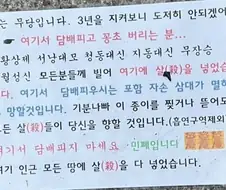 는 무당입니다. 3년을 지켜보니 도저히 안되겠어
여기서 담배피고 꽁초 버리는 분...
황상제 서낭대모 청동대신 지동대신 무장승
일월성신 모든분들께 빌어 여기에 살(殺)을 넣었습
. 여기서 담배피우시는 포함 자손 삼대가 멸하
망할것입니다. 기분나빠 이 종이를 찢거나 뜯어도
든 살(殺)들이 당신을 향할 것입니다.(흡연구역제외
여기서 담배피지 마세요. 민폐입니다
기 인근 모든 땅에 살(殺)을 다 넣었습니다.